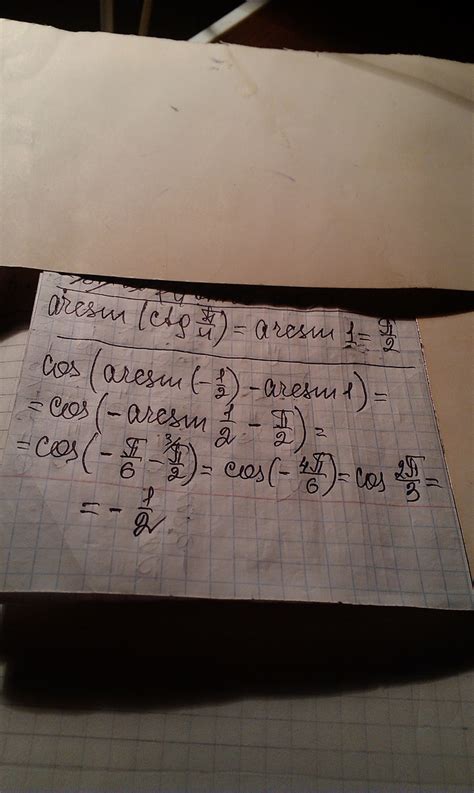 arcsin (ctg π/4) = arcsin 1 = π/2
cos(arcsin(-1/2) - arcsin 1) =
= cos(-arcsin 1/2 - π/2) =
= cos(-π/6 - 3/ π/2) = cos(-4π/6) = cos 2π/3 =
= -1/2